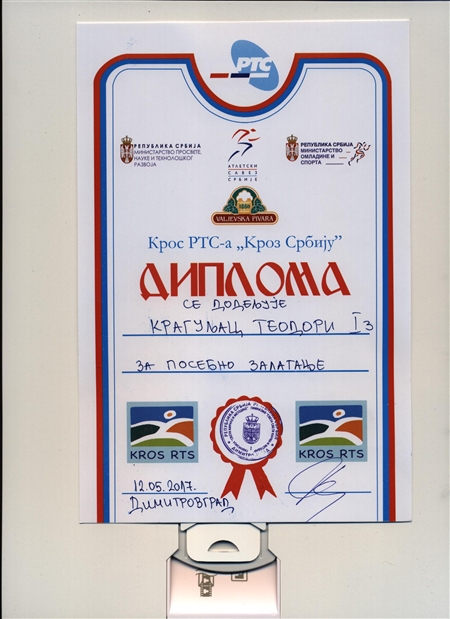 РТС
РЕПУБЛИКА СРБИЈА
МИНИСТАРСТВО ПРОСВЕТЕ,
НАУКЕ И ТЕХНОЛОШКОГ
РАЗВОЈА
АТЛЕТСКИ
САВЕЗ
СРБИЈЕ
РЕПУБЛИКА СРБИЈА
МИНИСТАРСТВО
ОМЛАДИНЕ И
СПОРТА
1860
VALJEVSKA PIVARA
Крос РТС-а „Кроз Србију”
ДИПЛОМА
СЕ ДОДЕЉУЈЕ
КРАГУЉАЦ ТЕОДОРИ I3
ЗА ПОСЕБНО ЗАЛАГАЊЕ
KROS RTS
KROS RTS
12.05.2017.
ДИМИТРОВГРАД